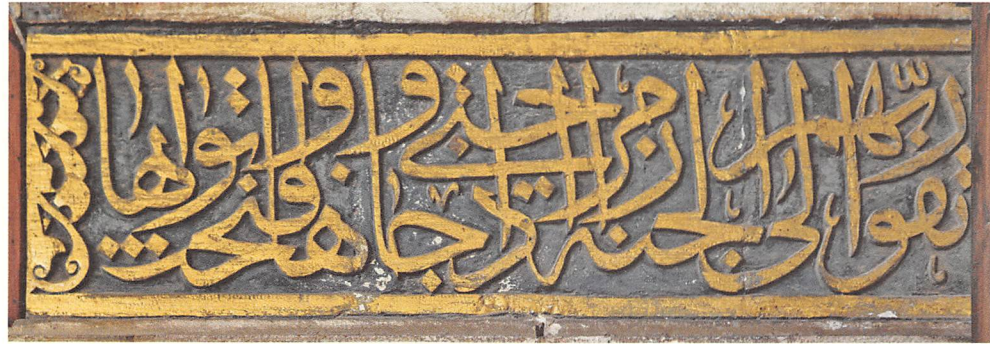 تقوا ربهم الى الجنة زمرا حتى اذا جاؤها وفتحت ابوابها